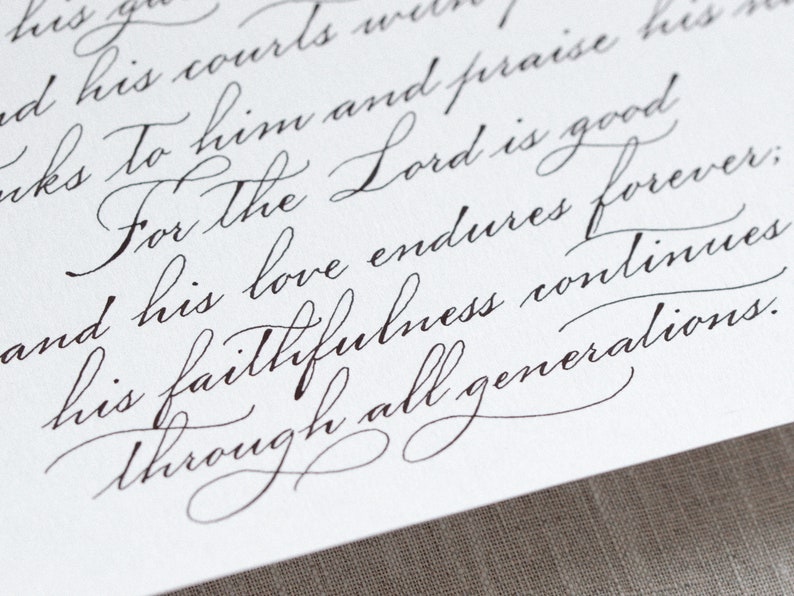 his
his courts with
to him and praise his
For the Lord is good
and his love endures forever;
his faithfulness continues
through all generations.